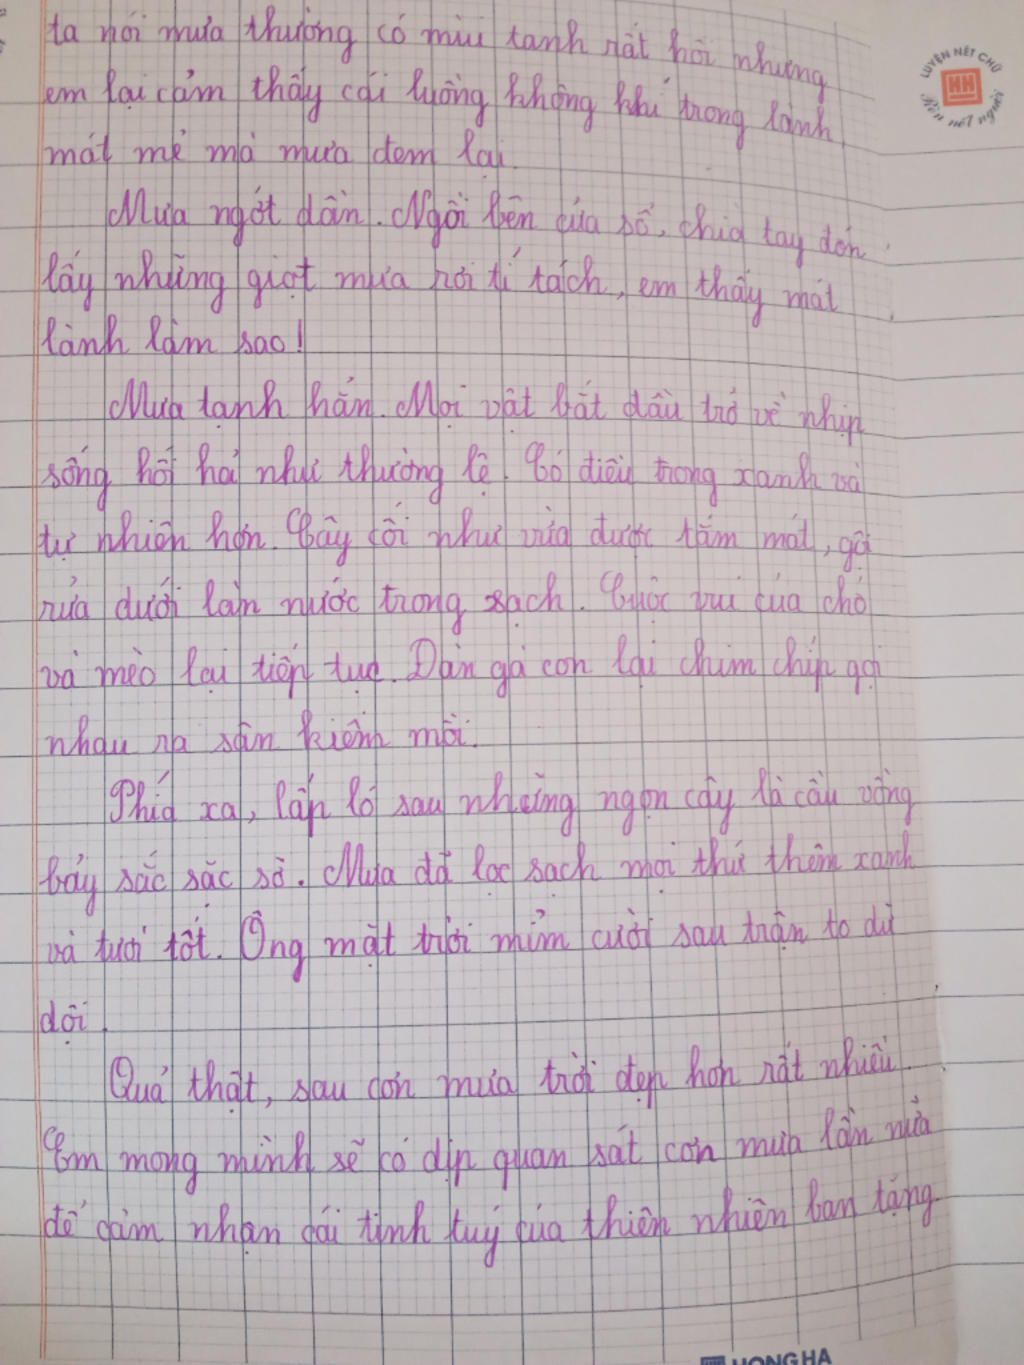 ta nói mưa thường có mùi tanh rất hôi nhưng
em lại cảm thấy cái luồng không khí trong lành
mát mẻ mà mưa đem lại.
Mưa ngớt dần. Ngồi bên cửa sổ, chìa tay đón
lấy những giọt mưa rơi tí tách, em thấy mát
lành làm sao!
Mưa tạnh hẳn. Mọi vật bắt đầu trở về nhịp
sống hối hả như thường lệ. Có điều trong xanh và
tự nhiên hơn. Cây cối như vừa được tắm mát, gội
rửa dưới làn nước trong sạch. Cuộc vui của chó
và mèo lại tiếp tục. Đàn gà con lại chim chíp gọi
nhau ra sân kiếm mồi.
Phía xa, lấp ló sau những ngọn cây là cầu vồng
bảy sắc sặc sỡ. Mưa đã lọc sạch mọi thứ thêm xanh
và tươi tốt. Ông mặt trời mỉm cười sau trận to dữ
dội.
Quả thật, sau cơn mưa trời đẹp hơn rất nhiều.
Em mong mình sẽ có dịp quan sát cơn mưa lần nữa
để cảm nhận cái tinh tuý của thiên nhiên ban tặng.
LUYỆN NÉT CHỮ
HH
Rèn nết người
HONG HA